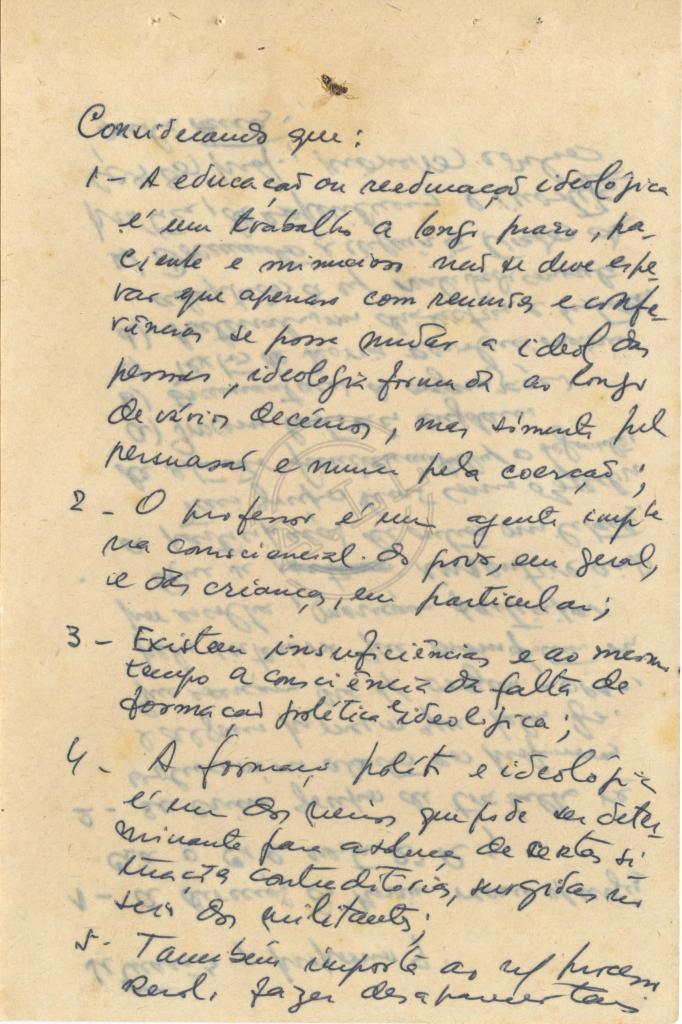 Considerando que:
1 - A educação ou reeducação ideológica
é um trabalho a longo prazo, pa-
ciente e minucioso não se deve espe-
rar que apenas com reuniões e confe-
rências se possa mudar a ideol das
pessoas, ideologia formada ao longo
de vários decénios, mas somente pel
persuasão e nunca pela coerção;
2 - O professor é um agente impte
na consciencial. do povo, em geral,
e das crianças, em particular;
3 - Existem insuficiências e ao mesmo
tempo a consciência da falta de
formação política e ideológica;
4 - A formaç polít e ideológica
é um dos meios que pode ser deter-
minante para a soluç de certas si-
tuações contraditórias, surgidas no
seio dos militantes;
5 - Também importa ao n/ process
revol. fazer desaparecer